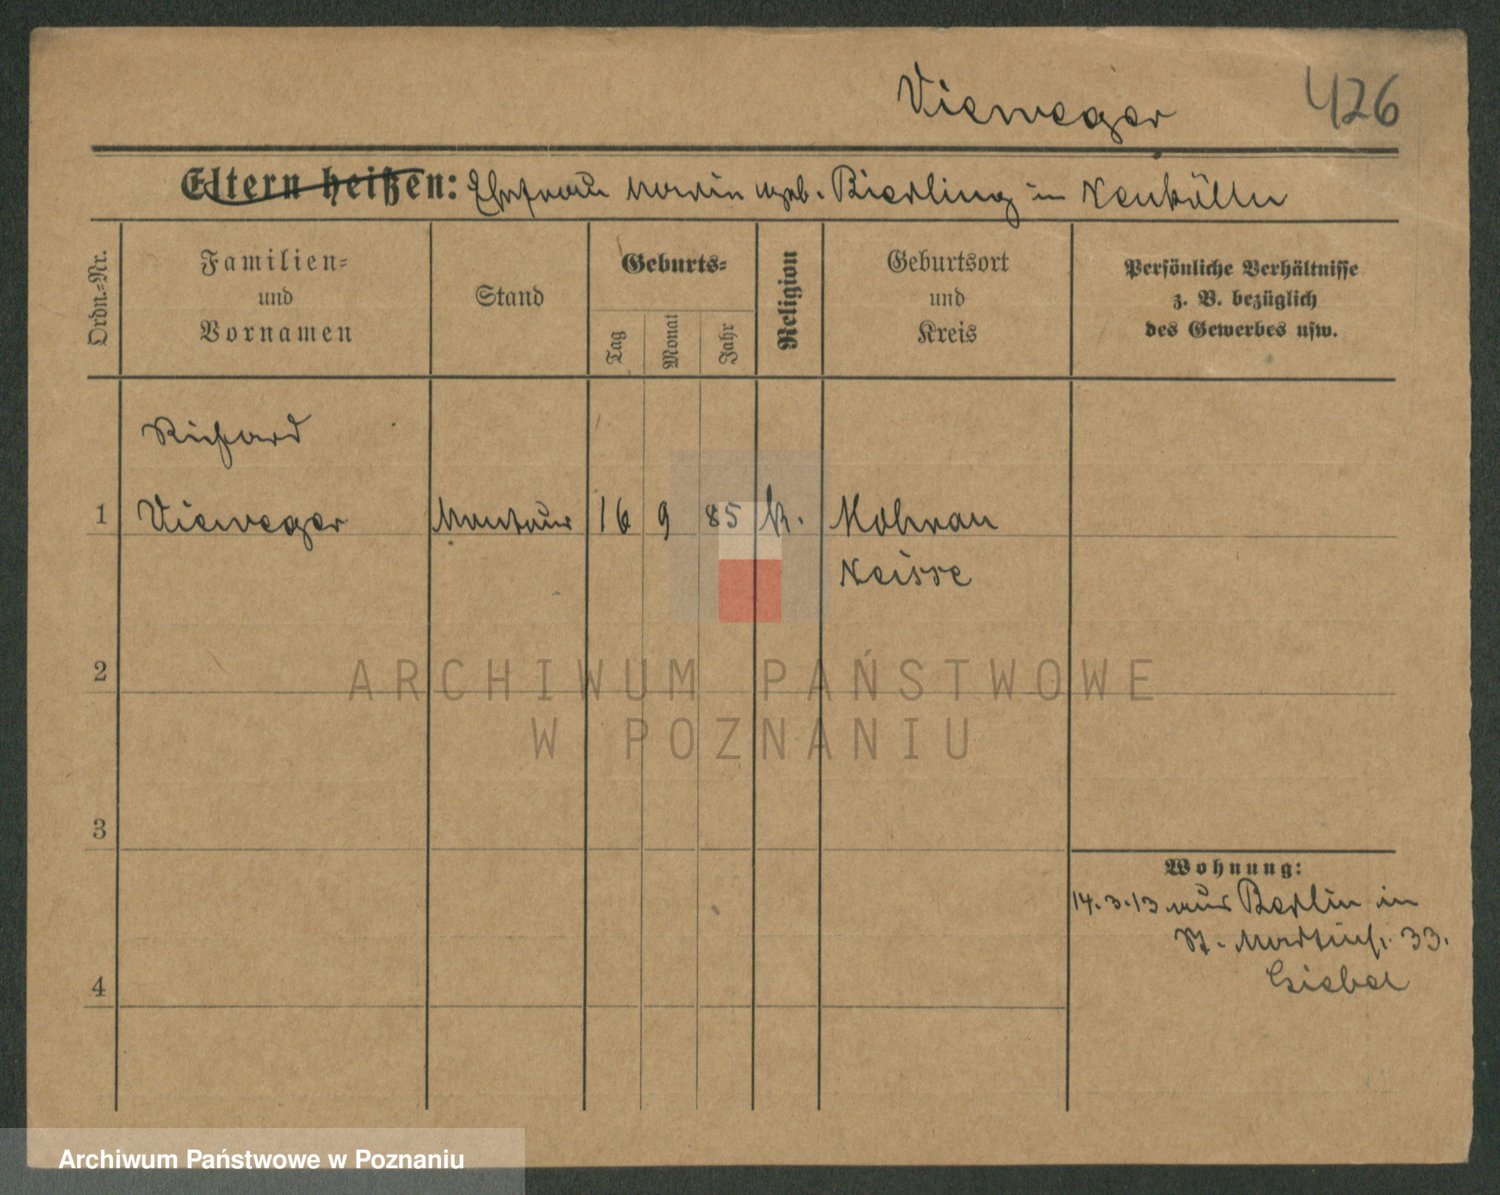 Vieweger 426
Eltern heißen: Ehefrau Maria geb. Bierling in Neukölln
Ordn.-Nr.
Familien-
und
Vornamen
Stand
Geburts-
Tag
Monat
Jahr
Religion
Geburtsort
und
Kreis
Persönliche Verhältnisse
z. B. bezüglich
des Gewerbes usw.
Richard
1 Vieweger Monteur 16 9 85 k. Mohrau
Neisse
2
ARCHIWUM PAŃSTWOWE
W POZNANIU
3
Wohnung:
14.3.13 aus Berlin in
St. Martinst. 33.
4
Giebel
Archiwum Państwowe w Poznaniu